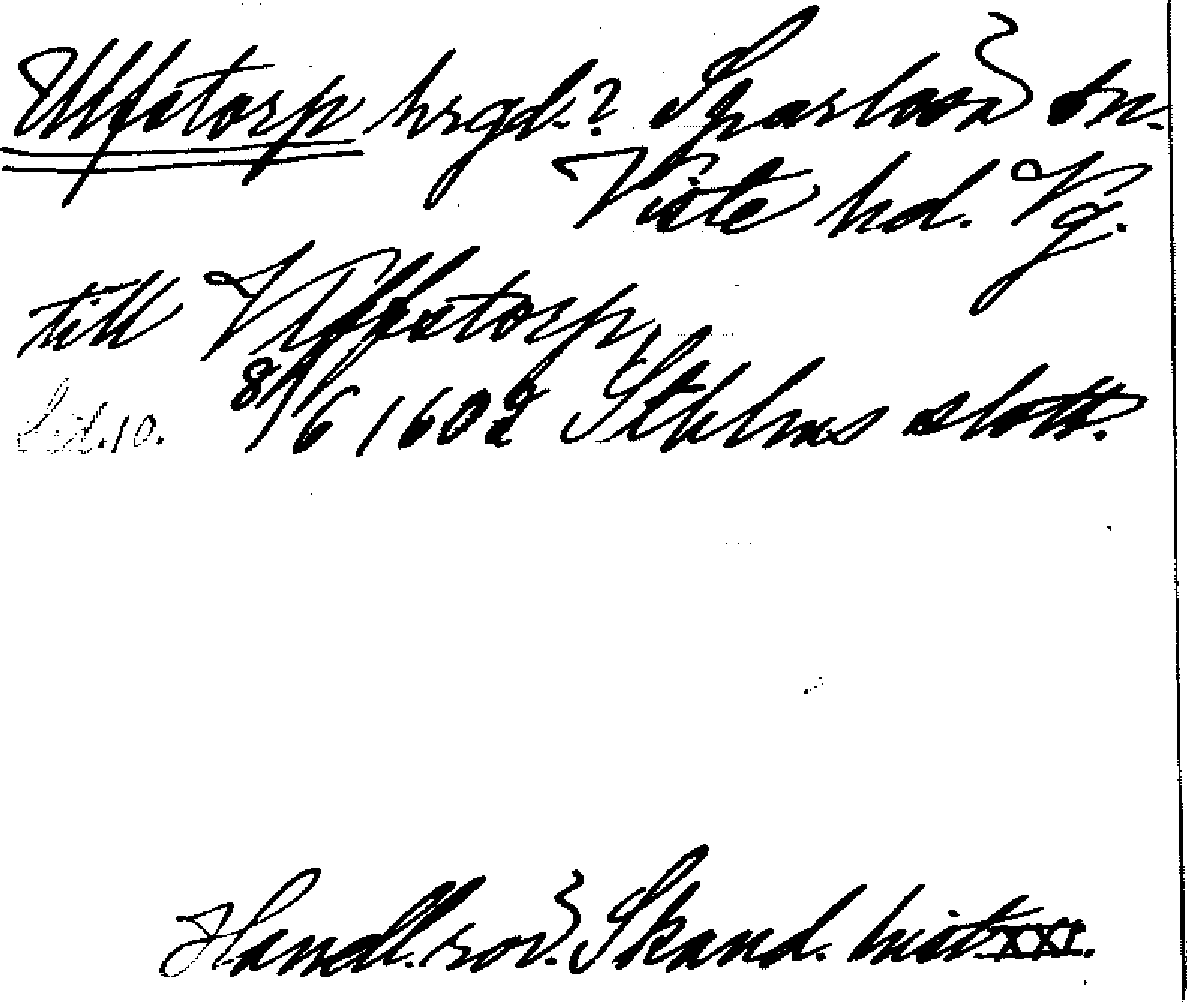 Ulfstorp hrgd.? Sparlösa sn.
Viste hd. Vg.
till Vlffstorp,
Sid. 10. 8/6 1602 Sthlms slott.
Handl. rör. Skand. hist. XXI.